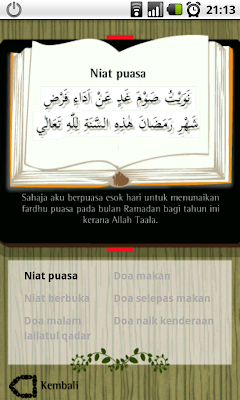 21:13
Niat puasa
نَوَيْتُ صَوْمَ غَدٍ عَنْ أَدَاءِ فَرْضِ
شَهْرِ رَمَضَانَ هٰذِهِ السَّنَةِ لِلّٰهِ تَعَالَى
Sahaja aku berpuasa esok hari untuk menunaikan
fardhu puasa pada bulan Ramadan bagi tahun ini
kerana Allah Taala.
Niat puasa
Doa makan
Niat berbuka
Doa selepas makan
Doa malam
lailatul qadar
Doa naik kenderaan
Kembali